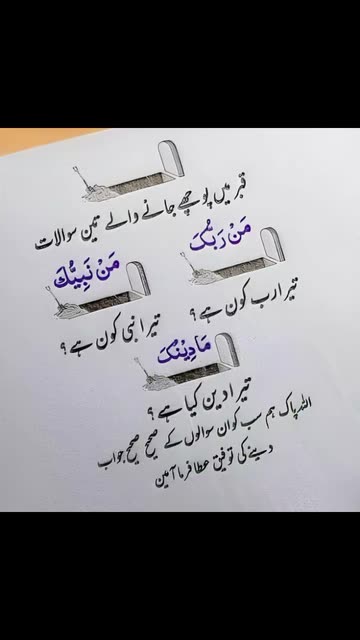 قبر میں پوچھے جانے والے تین سوالات
مَنْ رَبُّکَ
تیرا رب کون ہے؟
مَنْ نَبِیُّكَ
تیرا نبی کون ہے؟
مَادِیْنُکَ
تیرا دین کیا ہے؟
اللہ پاک ہم سب کو ان سوالوں کے صحیح صحیح جواب
دینے کی توفیق عطا فرما آمین